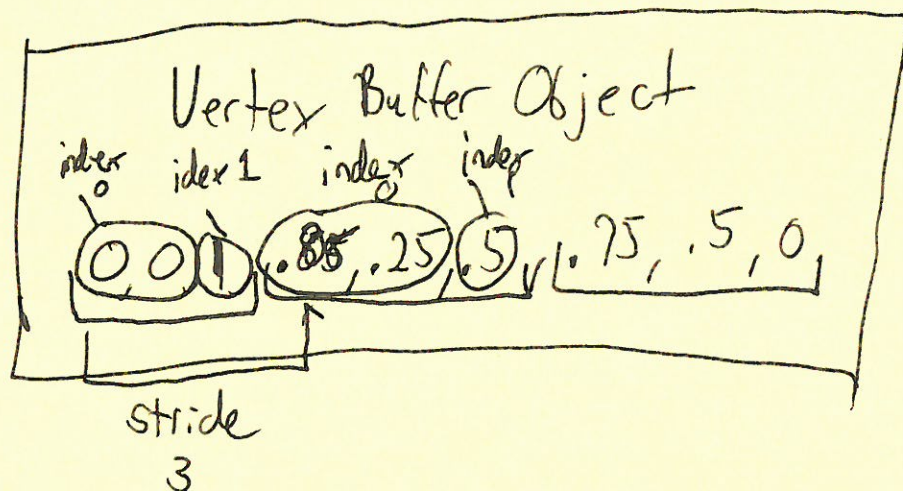 Vertex Buffer Object
index 0 idex 1 index 0 index
0 0 1 , .25, .5, .75, .5, 0
stride
3